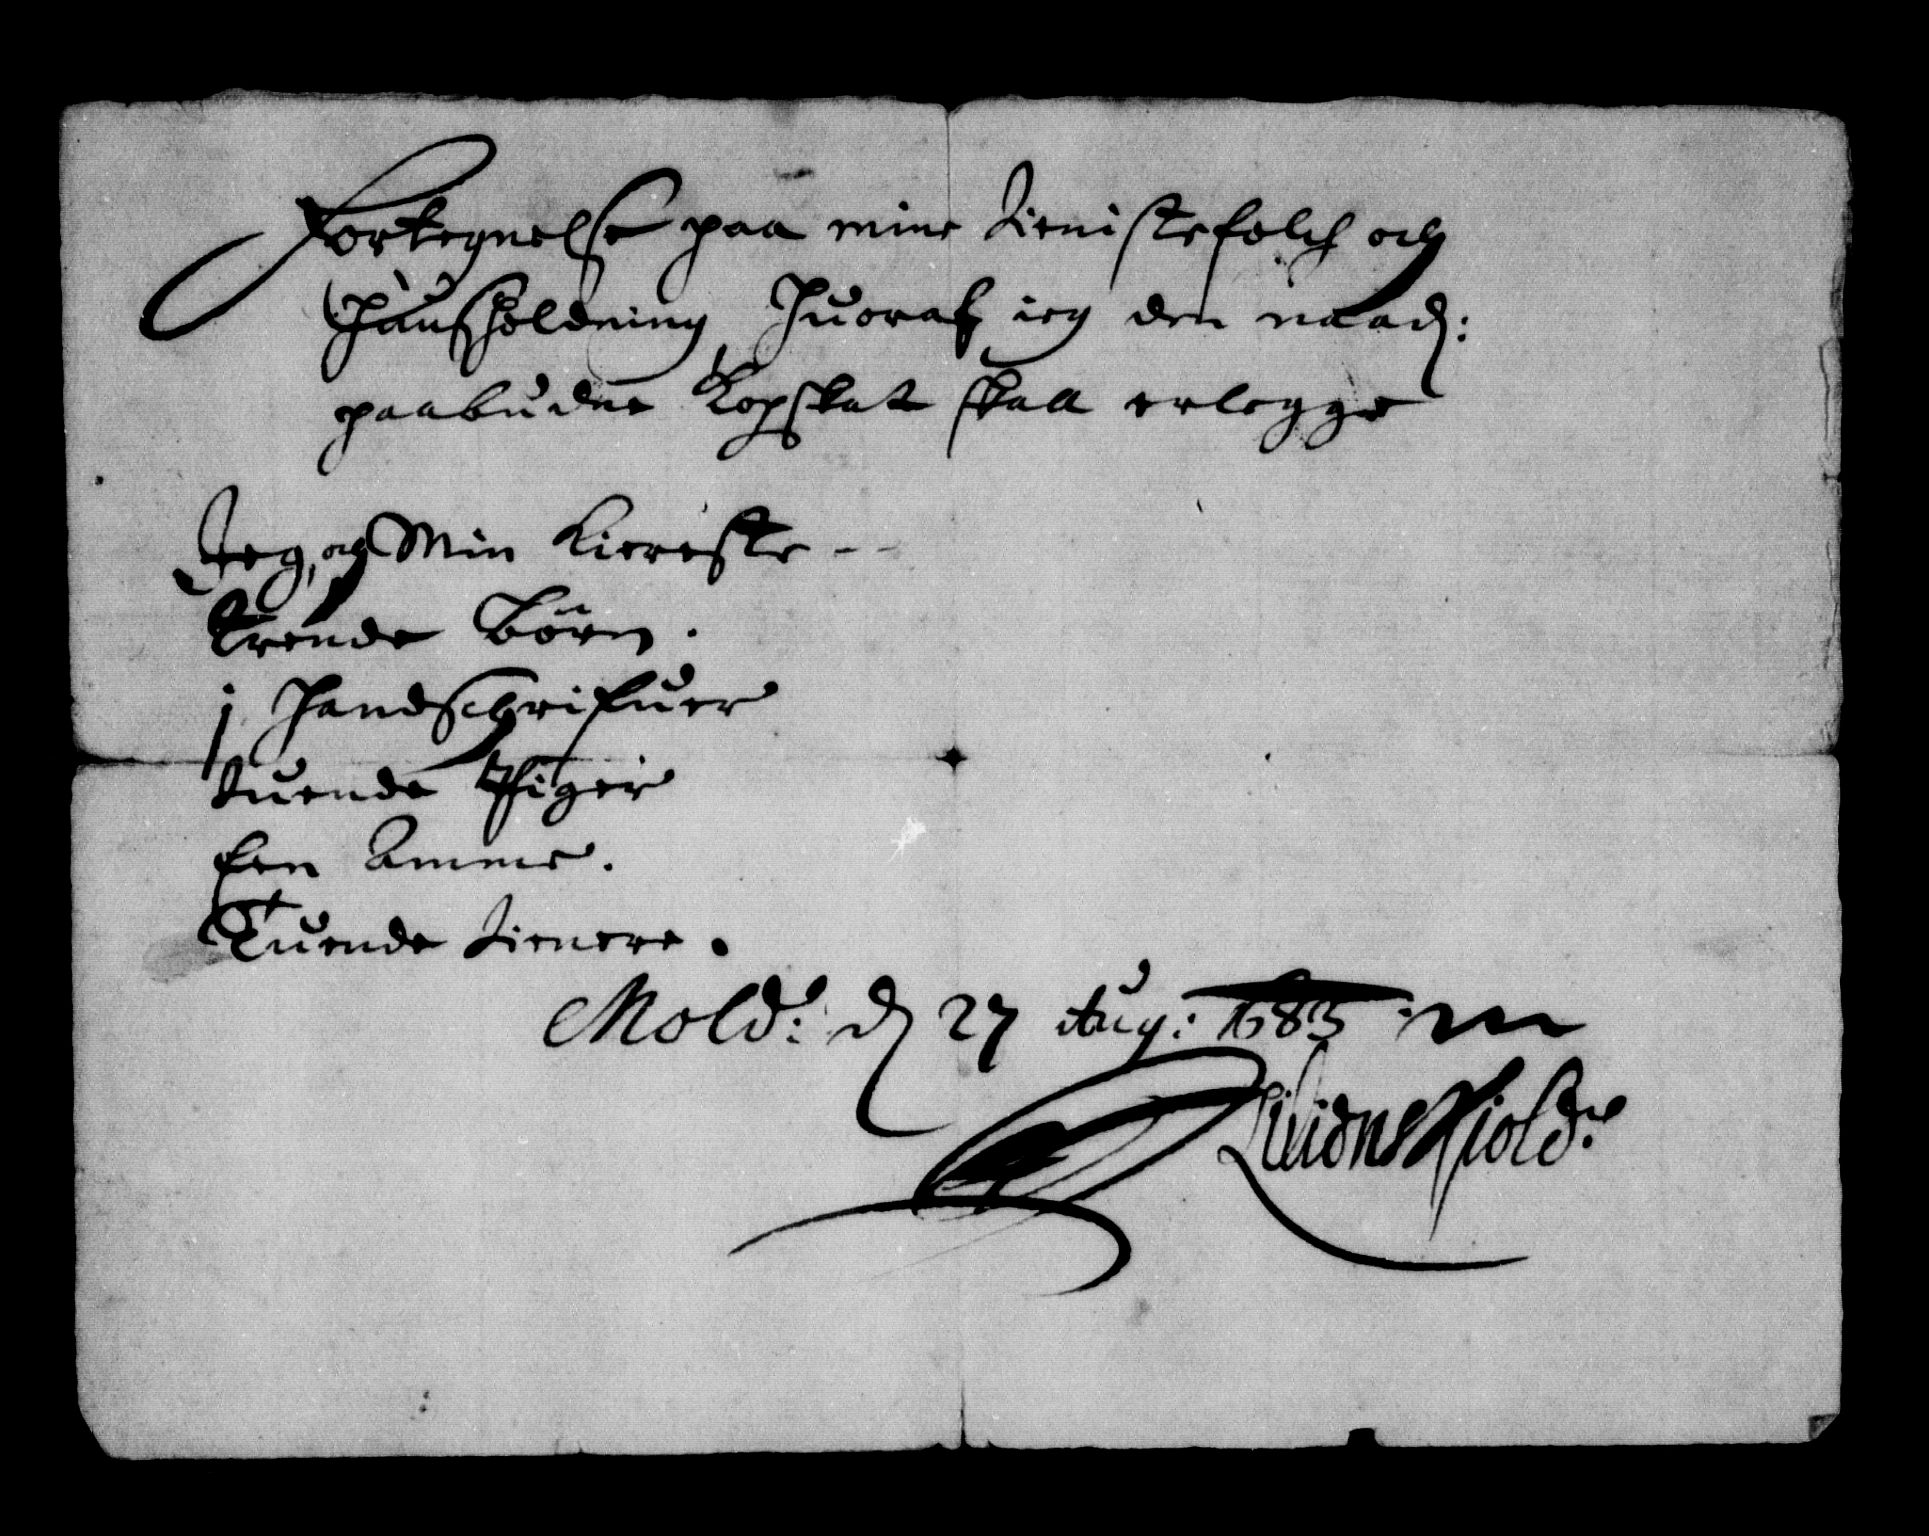 Fortegnelse paa mine tienistefolch och
Haussholdning, Huoraf ieg den naad:
paabudne Kopskat skall erlegge
Jeg, och Min Kiereste --
Trende Börn.
j Handschrifuer
tuende Piger
Een Amme.
Tuende tienere.
Mold: d 27 Aug: 1683